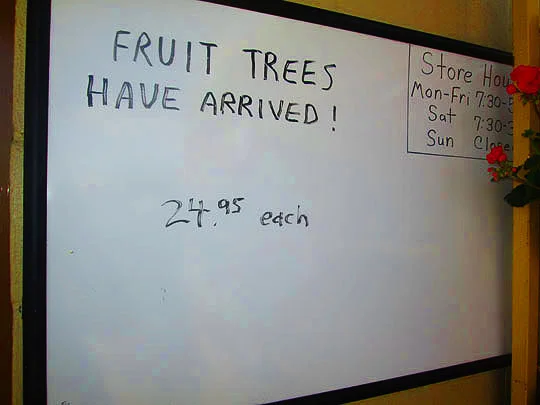 FRUIT TREES
HAVE ARRIVED!
24.95 each
Store
Mon-Fri 7:30-
Sat 7:30-
Sun